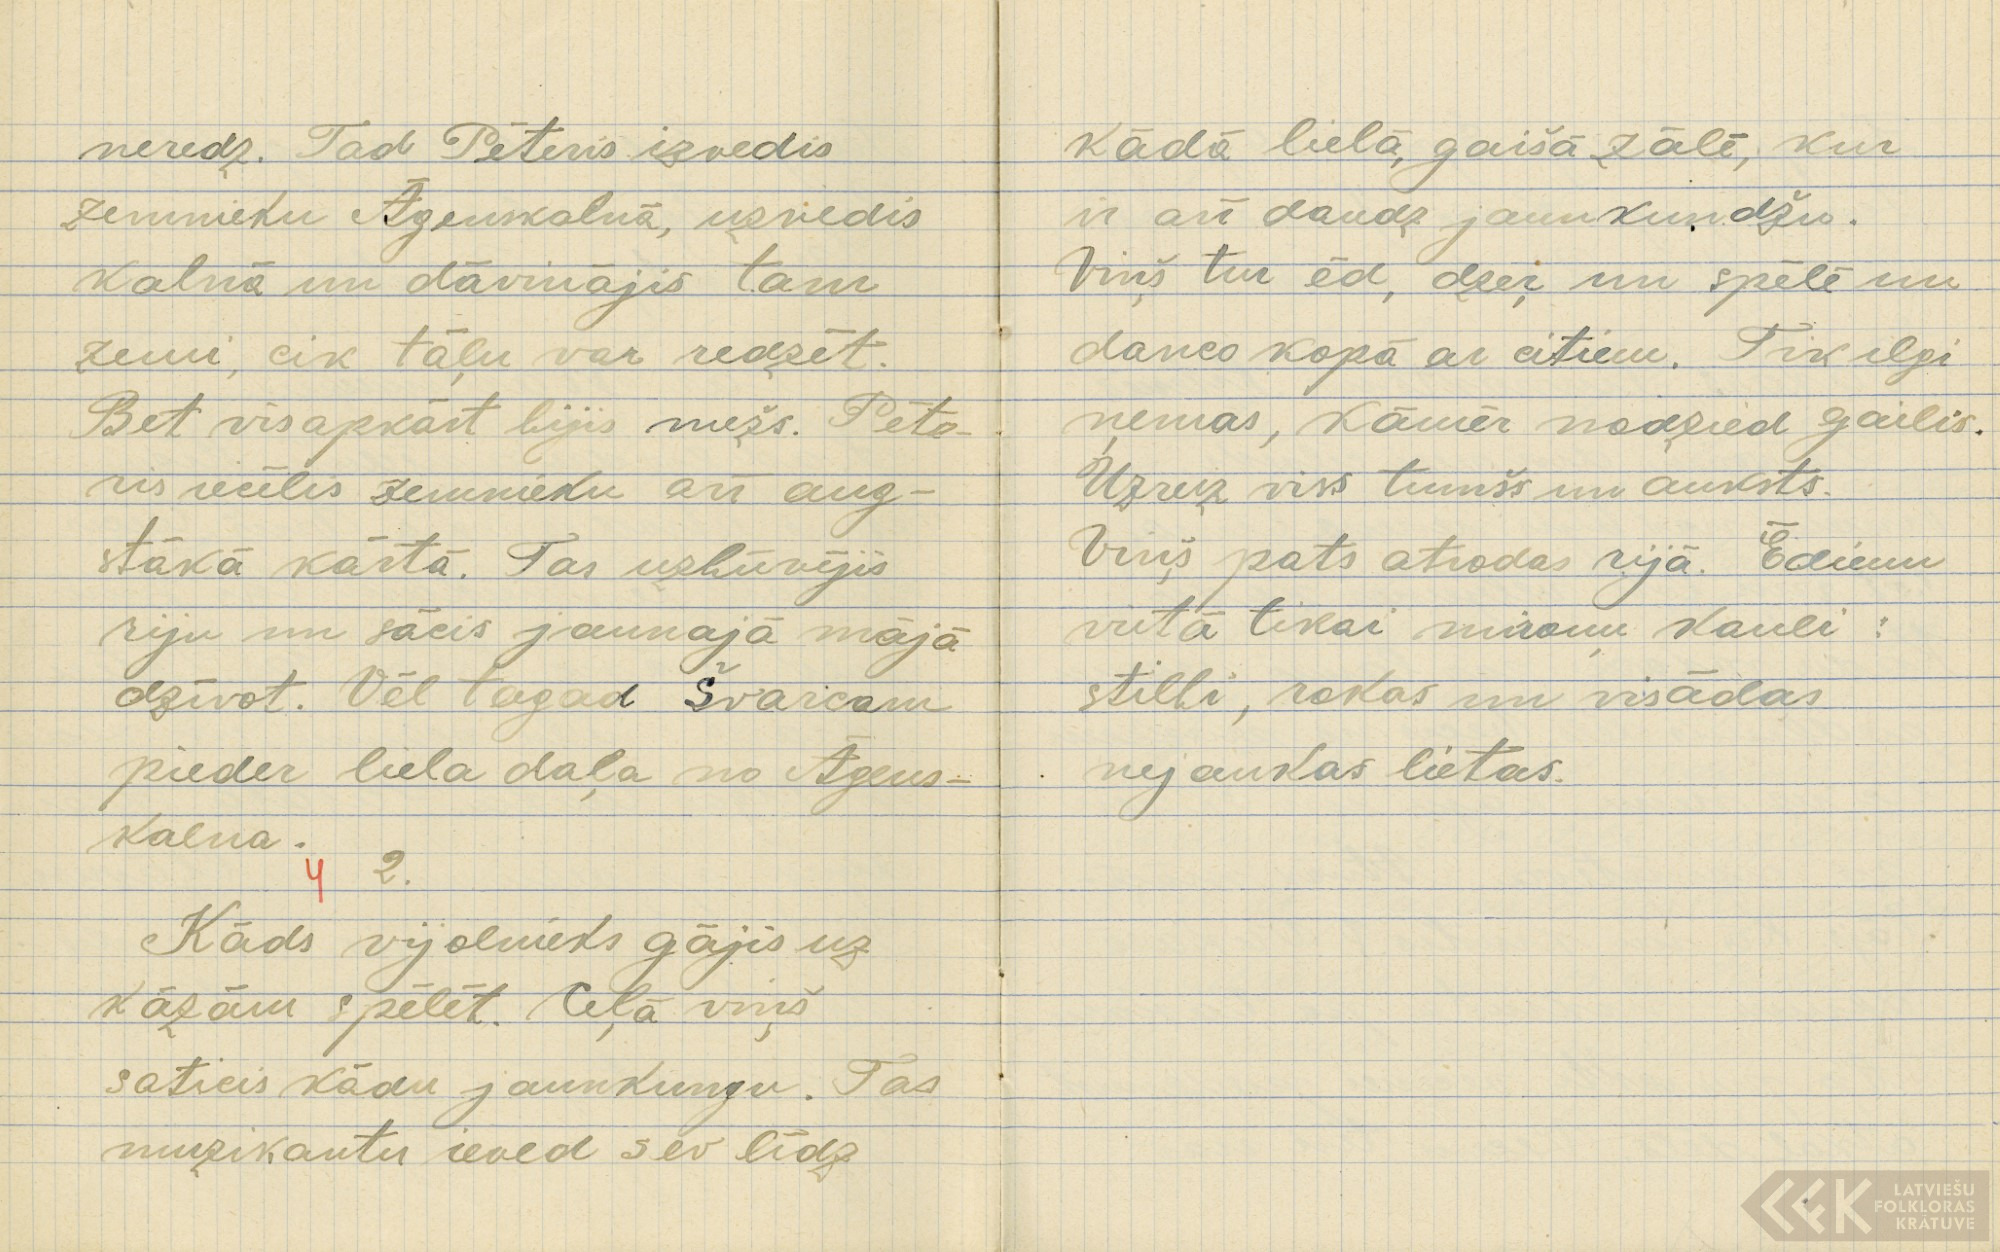 neredz. Tad Pēteris izvedis
zemnieku Āgenskalnā, uzvedis
kalnā un dāvinājis tam
zemi, cik tāļu var redzēt.
Bet visapkārt bijis mežs. Pēte-
ris iecēlis zemnieku arī aug-
stākā kārtā. Tas uzbūvējis
riju un sācis jaunajā mājā
dzīvot. Vēl tagad Švarcam
pieder liela daļa no Āgens-
kalna.
4 2.
Kāds vijolnieks gājis uz
kāzām spēlēt. Ceļā viņš
saticis kādu jaunkungu. Tas
muzikantu ieved sev līdz
kādā lielā, gaišā zālē, kur
ir arī daudz jaunkundžu.
Viņš tur ēd, dzeŗ un spēlē un
danco kopā ar citiem. Tik ilgi
ņemas, kāmēr nodzied gailis.
Uzreiz viss tumšs un auksts.
Viņš pats atrodas rijā. Ēdienu
vietā tikai mironu kauli:
stilbi, rokas un visādas
nejaukas lietas.
LATVIEŠU
FOLKLORAS
KRĀTUVE